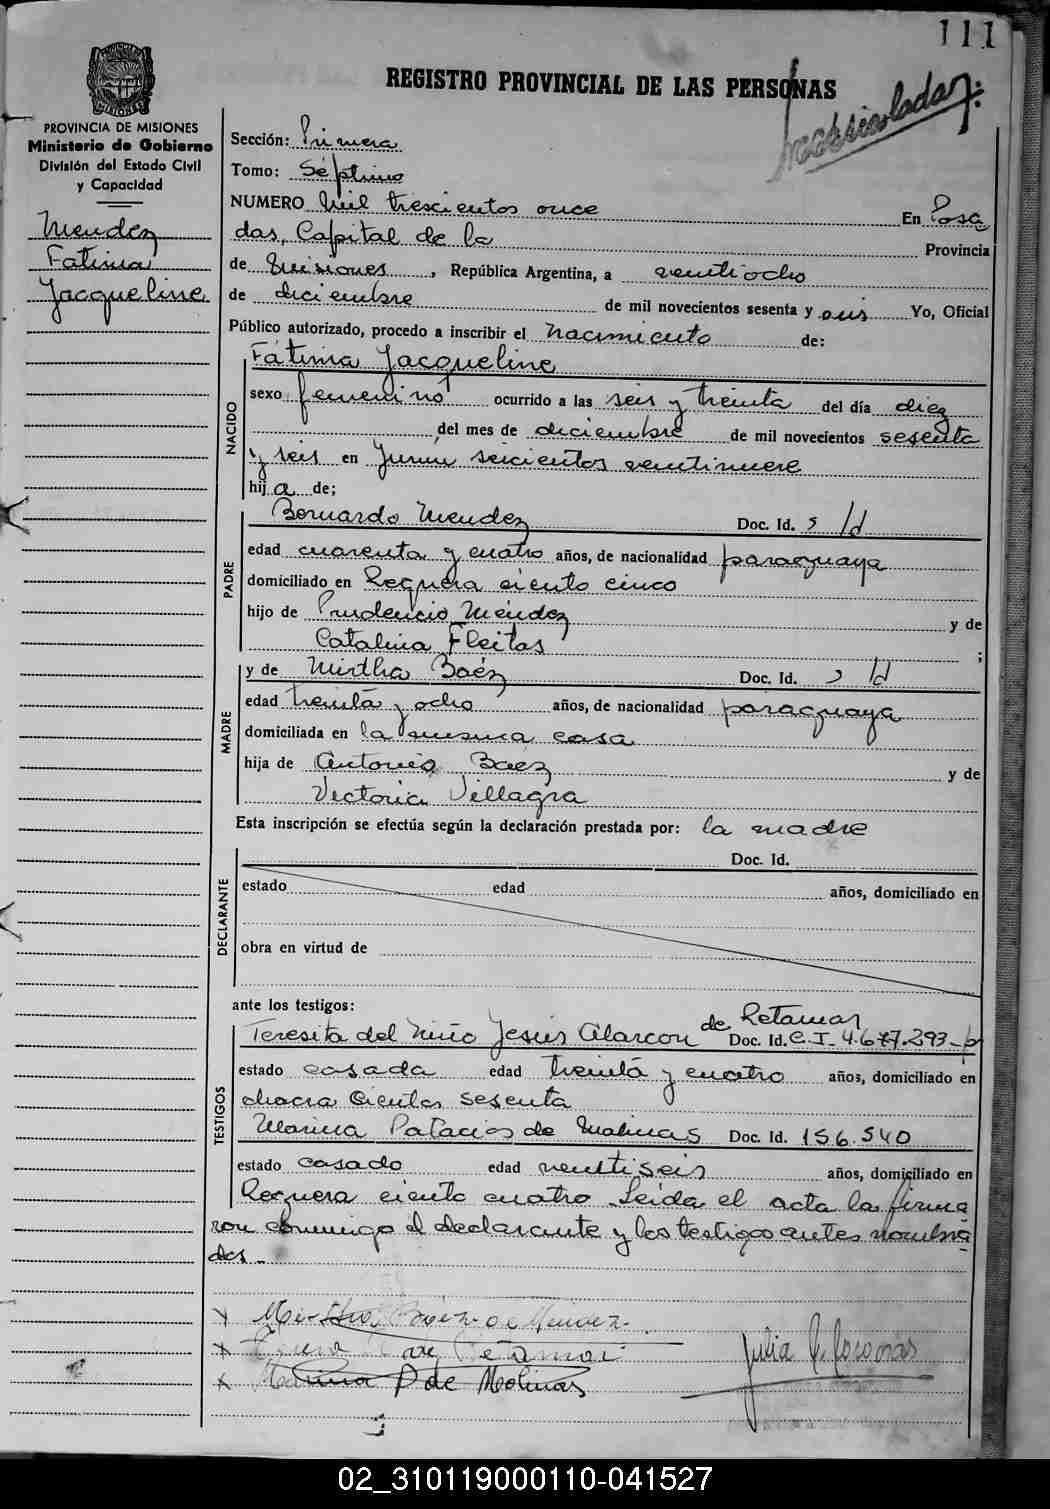 111
REGISTRO PROVINCIAL DE LAS PERSONAS
PROVINCIA DE MISIONES
Ministerio de Gobierno
División del Estado Civil
y Capacidad
Mendez
Fatima
Jacqueline
Sección: Primera
Tomo: Séptimo
NUMERO Mil trescientos once En Posa
das, Capital de la Provincia
de Misiones, República Argentina, a veintiocho
de diciembre de mil novecientos sesenta y seis Yo, Oficial
Público autorizado, procedo a inscribir el nacimiento de:
NACIDO
Fátima Jacqueline
sexo femenino ocurrido a las seis y treinta del día diez
del mes de diciembre de mil novecientos sesenta
y seis en Junin seiscientos veintinueve
hija de;
PADRE
Bernardo Mendez Doc. Id.
edad cuarenta y cuatro años, de nacionalidad paraguaya
domiciliado en Requera ciento cinco
hijo de Prudencio Méndez y de
Catalina Fleitas ;
MADRE
y de Mirtha Baéz Doc. Id.
edad treinta y ocho años, de nacionalidad paraguaya
domiciliada en la misma casa
hija de Antonio Baez y de
Victoria Villagra
Esta inscripción se efectúa según la declaración prestada por: la madre
DECLARANTE
Doc. Id.
estado edad años, domiciliado en
obra en virtud de
ante los testigos:
TESTIGOS
Teresita del Niño Jesús Alarcon de Retamar Doc. Id. C.I. 4.677.293
estado casada edad treinta y cuatro años, domiciliado en
chacra ciento sesenta
Marina Palacios de Malinas Doc. Id. 156.540
estado casado edad veintiseis años, domiciliado en
Requera ciento cuatro Leida el acta la firma
ron conmigo el declarante y los testigos antes nombra
dos.-
x Mirtha Baez de Mendez
x Retamar
x Marina P de Molinas
Julia
02_310119000110-041527